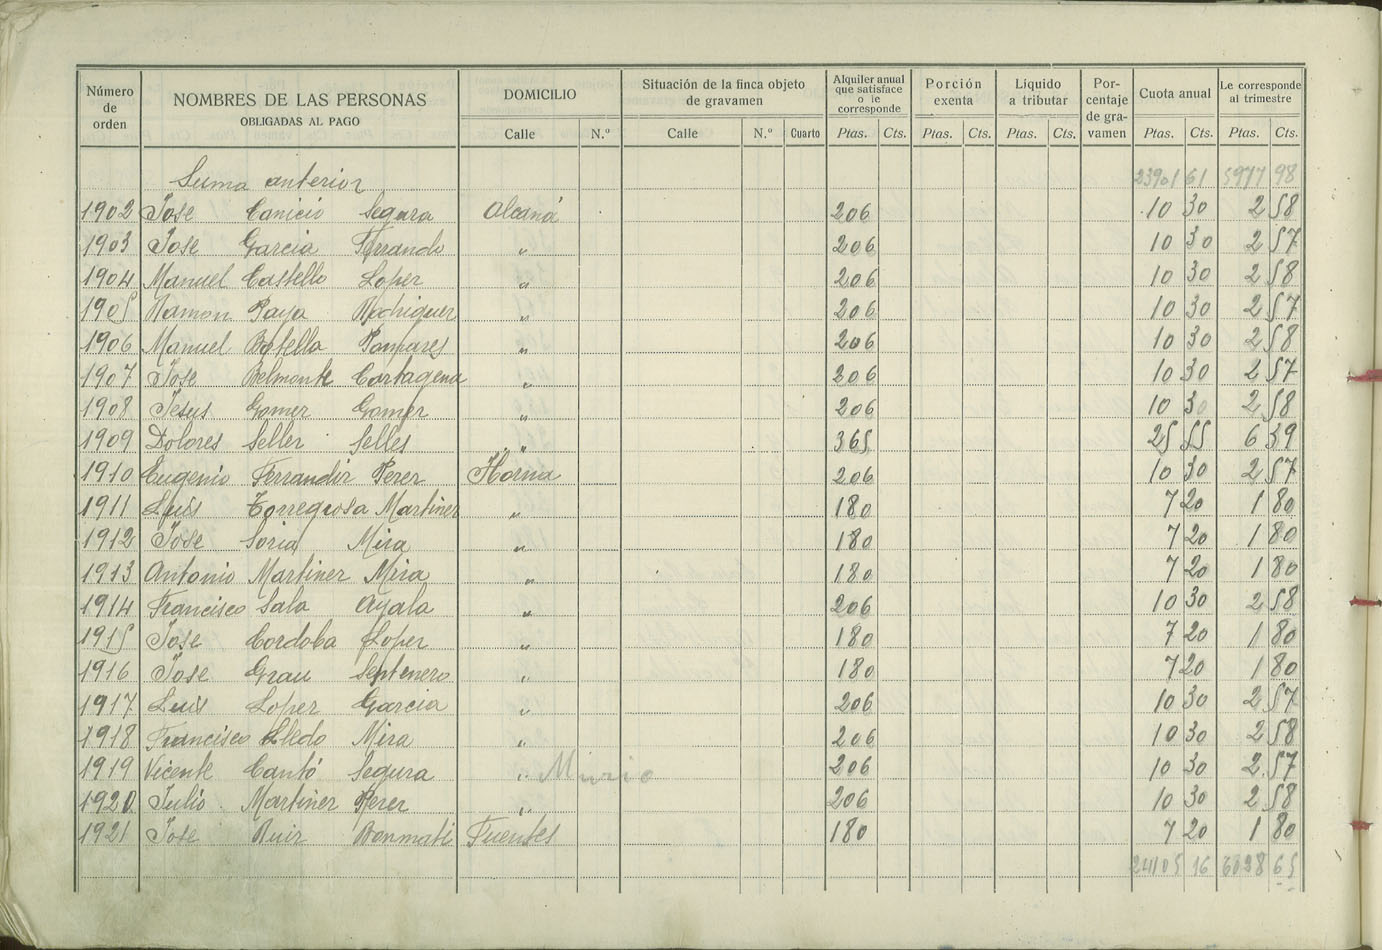 Número de orden
NOMBRES DE LAS PERSONAS OBLIGADAS AL PAGO
DOMICILIO
Calle N.º
Situación de la finca objeto de gravamen
Calle N.º Cuarto
Alquiler anual que satisface o le corresponde
Ptas. Cts.
Porción exenta
Ptas. Cts.
Líquido a tributar
Ptas. Cts.
Porcentaje de gravamen
Cuota anual
Ptas. Cts.
Le corresponde al trimestre
Ptas. Cts.
Suma anterior 23901 61 5977 98
1902 Jose Canicio Segura Alcaná 206 10 30 2 58
1903 Jose Garcia Ferrando " 206 10 30 2 57
1904 Manuel Castello Loper " 206 10 30 2 58
1905 Ramon Paya Rodriguer " 206 10 30 2 57
1906 Manuel Botella Pampares " 206 10 30 2 58
1907 Jose Belmonte Cartagena " 206 10 30 2 57
1908 Jesus Gomer Gomer " 206 10 30 2 58
1909 Dolores Seller Selles " 365 25 55 6 39
1910 Eugenio Ferrandir Perer Horna 206 10 30 2 57
1911 Luis Torregrosa Martiner " 180 7 20 1 80
1912 Jose Soria Mira " 180 7 20 1 80
1913 Antonio Martiner Mira " 180 7 20 1 80
1914 Francisco Sala Ayala " 206 10 30 2 58
1915 Jose Cordoba Loper " 180 7 20 1 80
1916 Jose Grau Septenero " 180 7 20 1 80
1917 Luis Loper Garcia " 206 10 30 2 57
1918 Francisco Lledo Mira " 206 10 30 2 58
1919 Vicente Cantó Segura " Murio 206 10 30 2 57
1920 Julio Martiner Perer " 206 10 30 2 58
1921 Jose Ruir Bonmati Fuentes 180 7 20 1 80
24105 16 6028 65